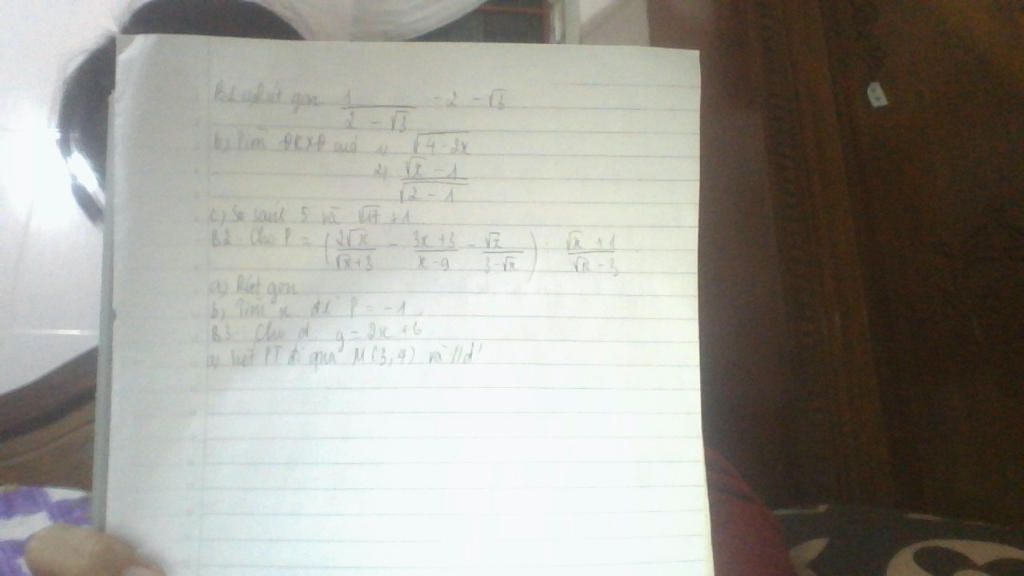 B1 a, Rút gọn 1/(2 - √3) - 2 - √3
b, Tìm ĐKXĐ của 1, √(4 - 2x)
2, (√x - 1)/√(2 - 1)
c, So sánh 5 và √17 + 1
B2: Cho P = (2√x/(√x+3) - (3x+3)/(x-9) - √x/(3-√x)) : (√x + 1)/(√x - 3)
a, Rút gọn
b, Tìm x để P = -1
B3: Cho d y = 2x + 6
a, Viết PT đi qua M(3,4) và // d